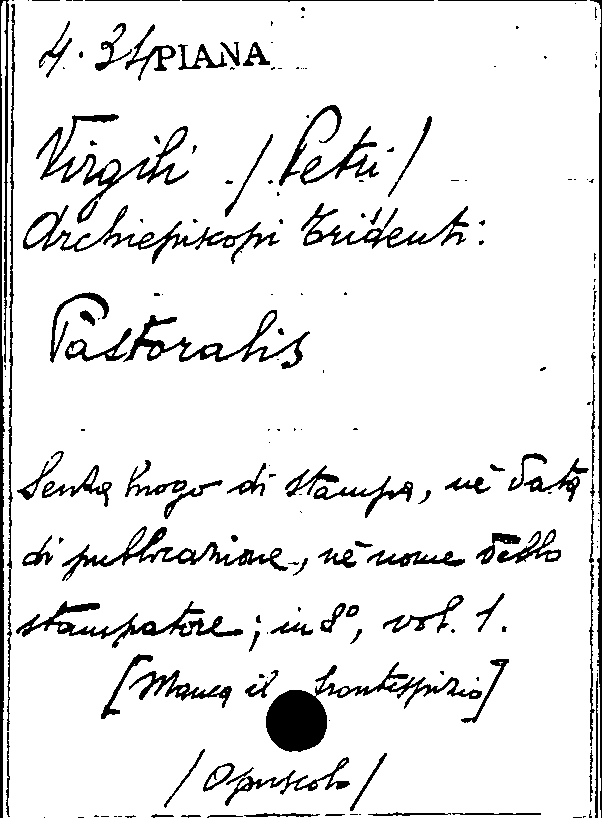 4. 34 PIANA
Virgili / Petri /
Archiepiscopi Tridenti:
Pastoralis
Senza luogo di stampa, nè data
di pubblicazione, nè nome dello
stampatore; in 8°, vol. 1.
[Manca il frontispizio]
/ Opuscolo /